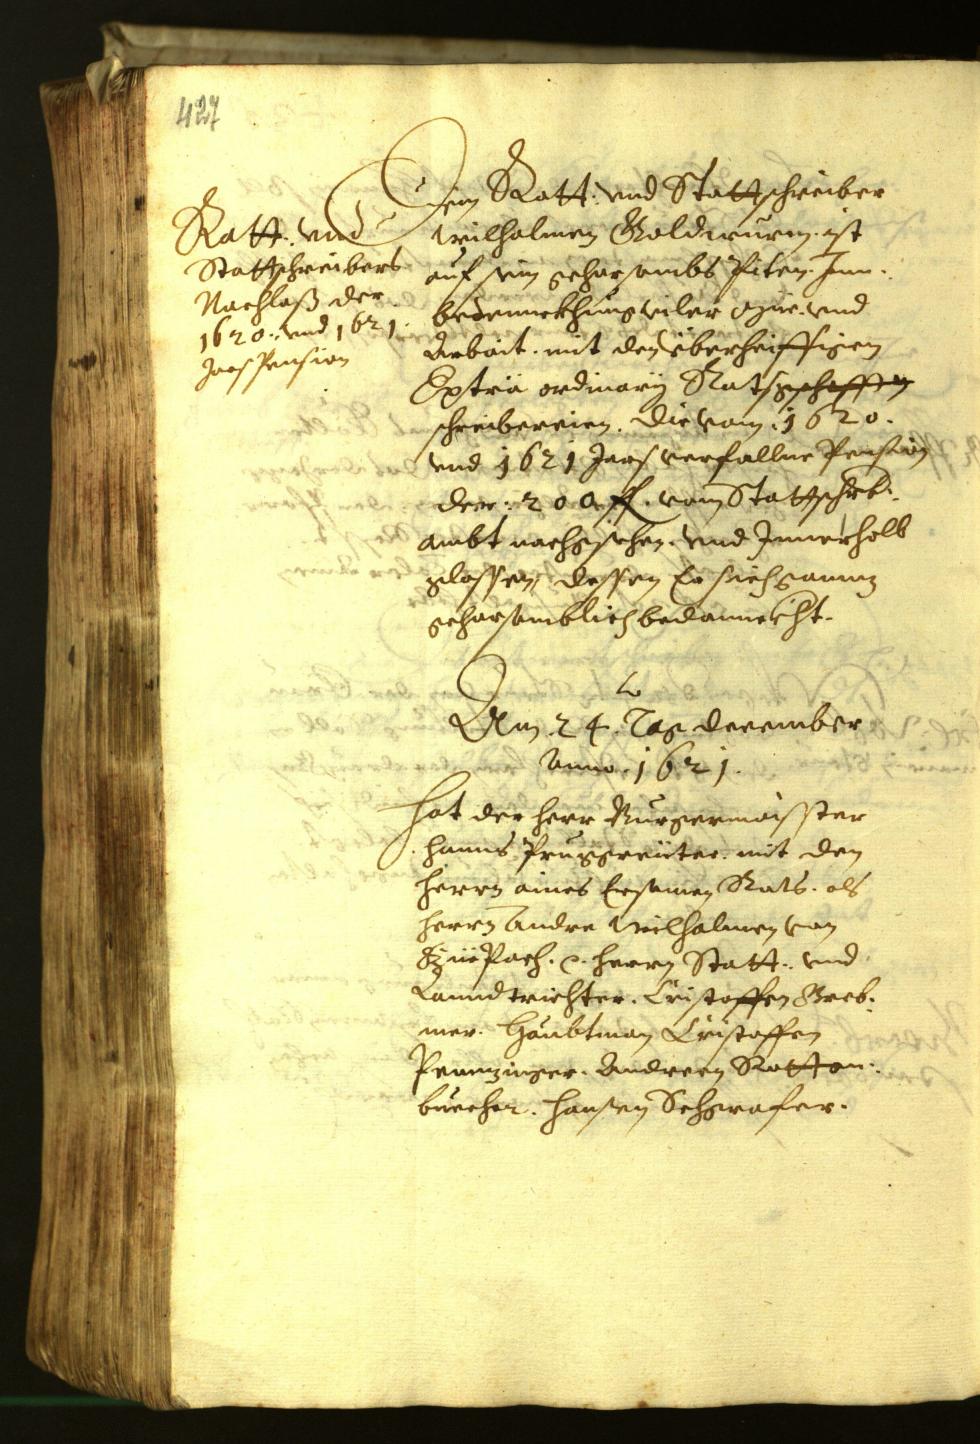 427
Ratt: vnd
Stattschreibers
Nachlaß der
1620. vnd 1621.
Jars Pension
Dem Ratt: vnd Stattschreiber
Wilhalmen Goldwurm. ist
auf sein gehorsambs Piten. Inn:
bedennckhung viler Müe. vnd
Arbait. mit den überheiffigen
Extra ordinarÿ Ratsgeschefften
schreibereien. die vom. 1620.
vnd 1621 Jars verfallne Pension
der: 200 fl. vom Stattschrb:
ambt nachgesehen. vnd Innerhalb
glassen, dessen Er sich ganntz
gehorsamblich bedannckht.
Am. 24. Tag december
Anno. 1621.
Hat der herr Burgermaisster
Hanns Pruggreiter. mit den
herrn aines Ersamen Rats. als
herrn Andre Wilhalmen von
herrn Statt: vnd
Lanndtrichter. Cristoffen Greb:
mer. Haubtman Cristoffen
Penntzinger. Andreen Rotten:
buecher. Hansen Schgrafer.